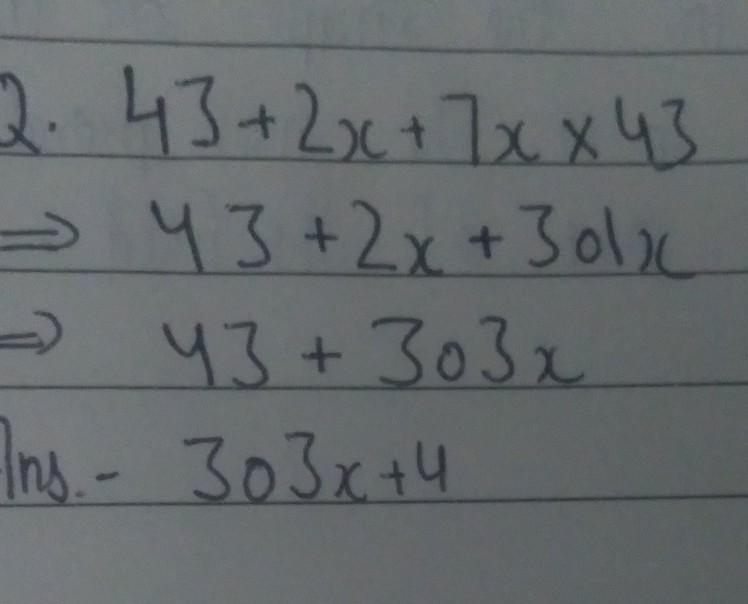 2. 43+2x+7x×43
⇒ 43+2x+301x
⇒ 43+303x
Ans.- 303x+4